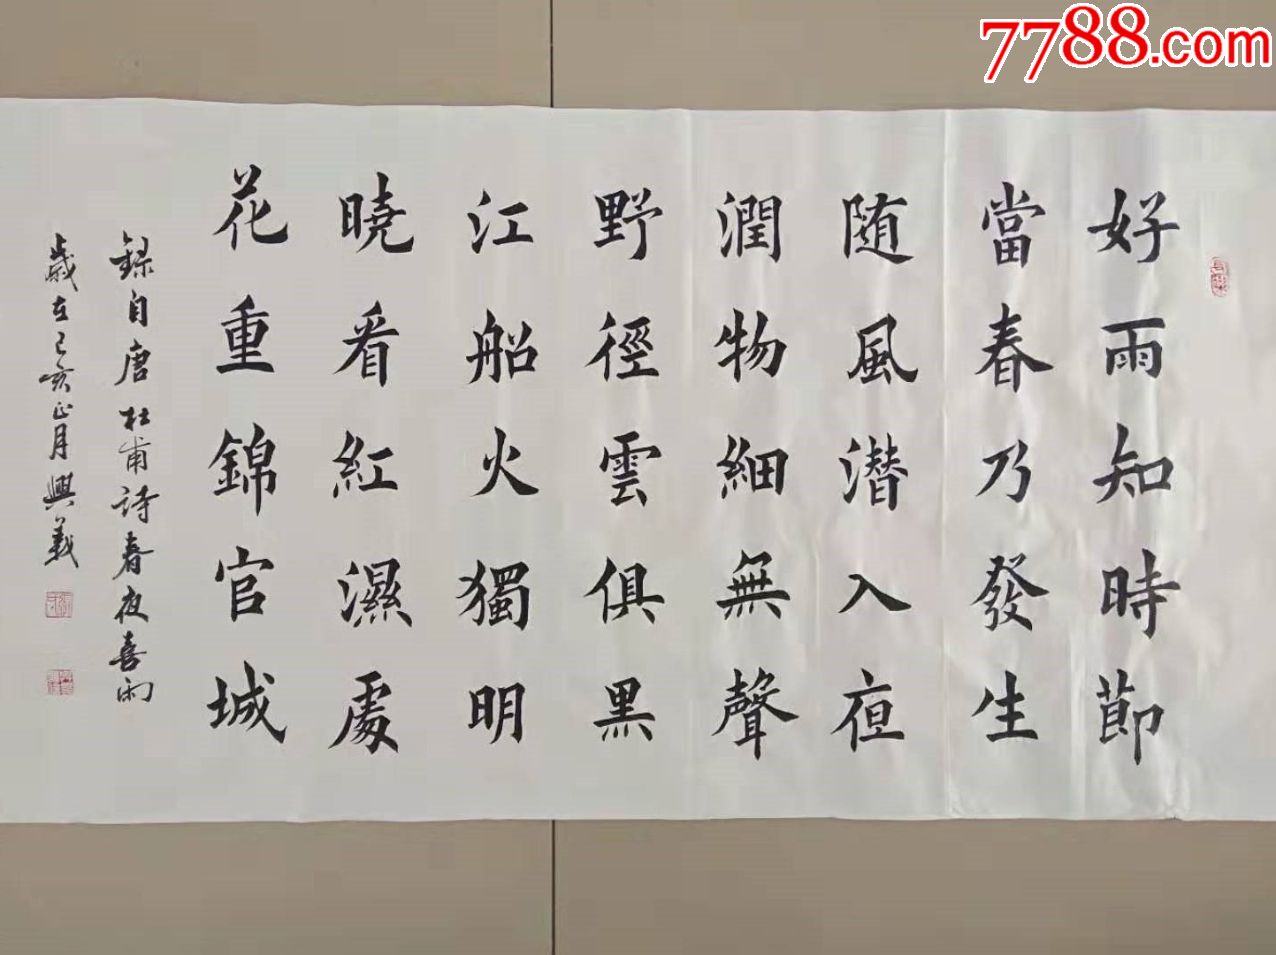 好雨知時節
當春乃發生
随風潜入夜
潤物細無聲
野徑雲俱黑
江船火獨明
曉看紅濕處
花重錦官城
錄自唐杜甫詩春夜喜雨
歲在己亥正月興義
7788.com